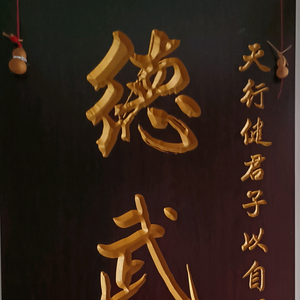 天行健君子以自
德武